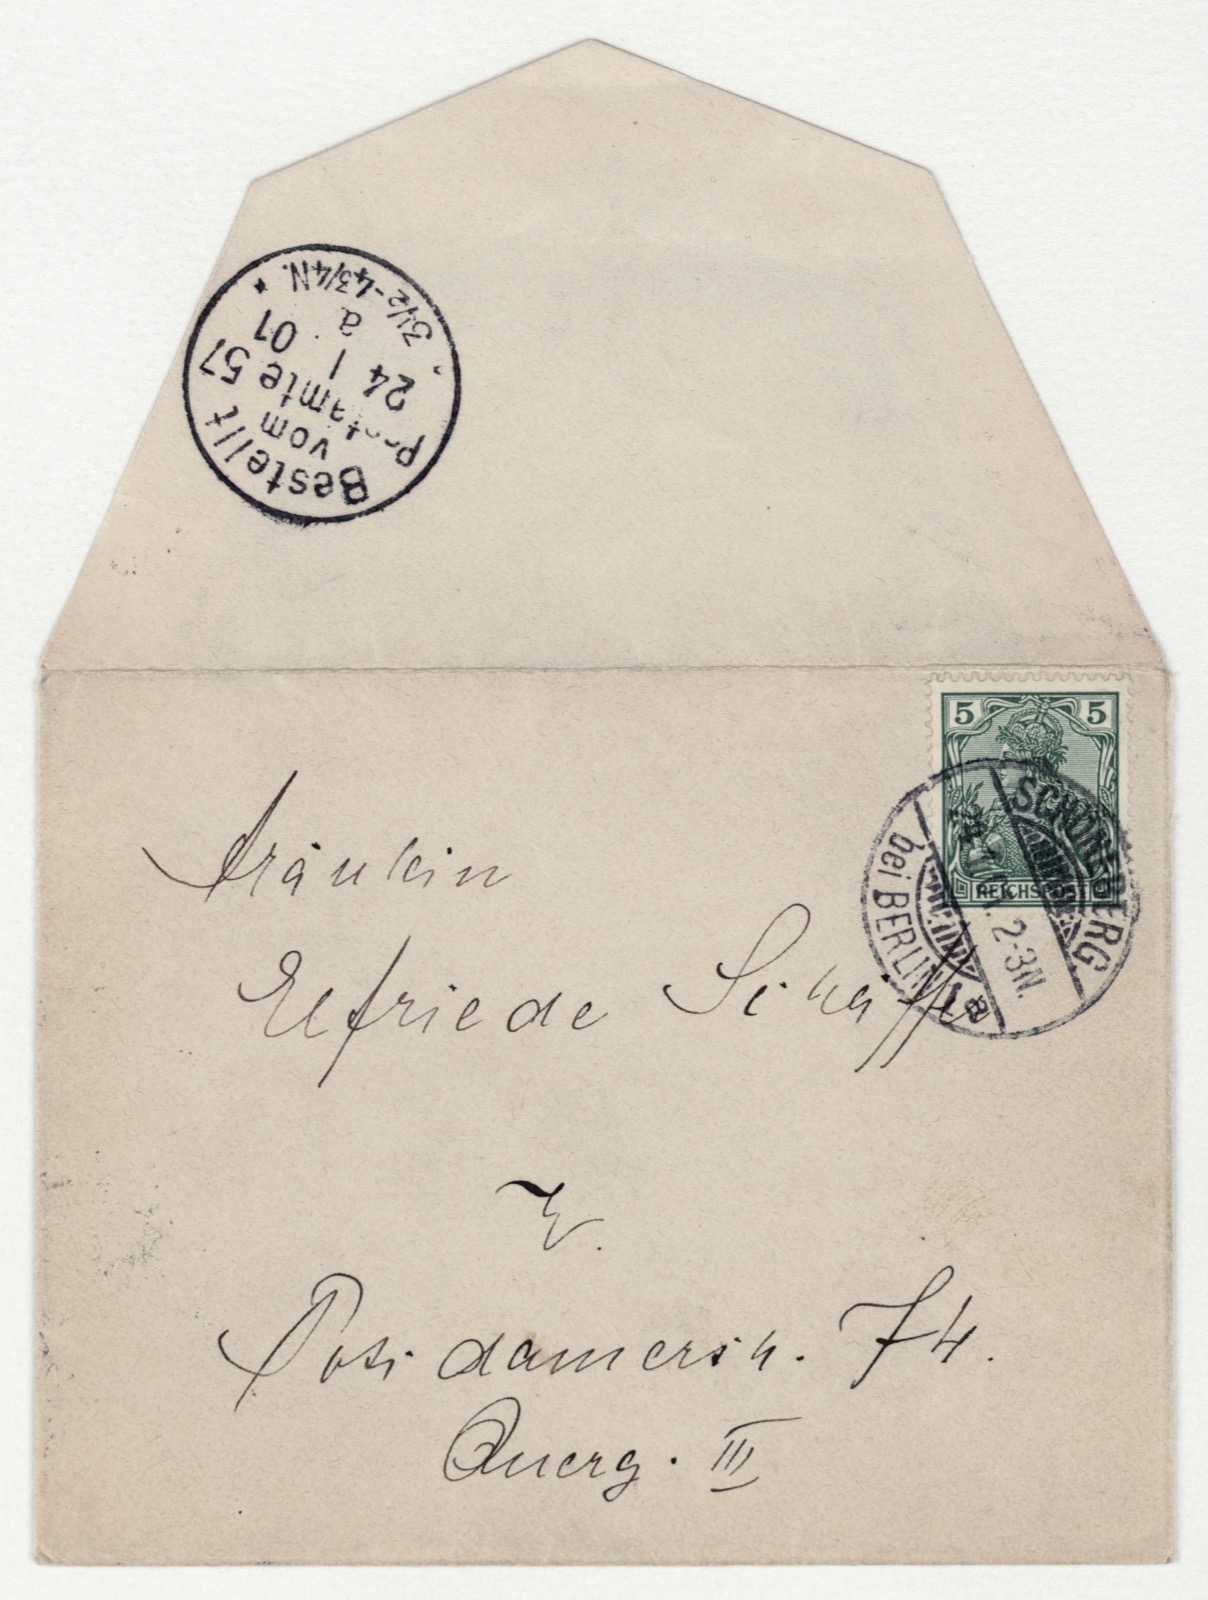 Bestellt
vom
Postamte 57
24 1 01
a
3½-4¾N.
5 5
REICHSPOST
SCHÖNEBERG
bei BERLIN 1
a
24.1.01. 2-3N.
Fräulein
Elfriede Schäffer
W.
Potsdamerstr. 74.
Querg. III